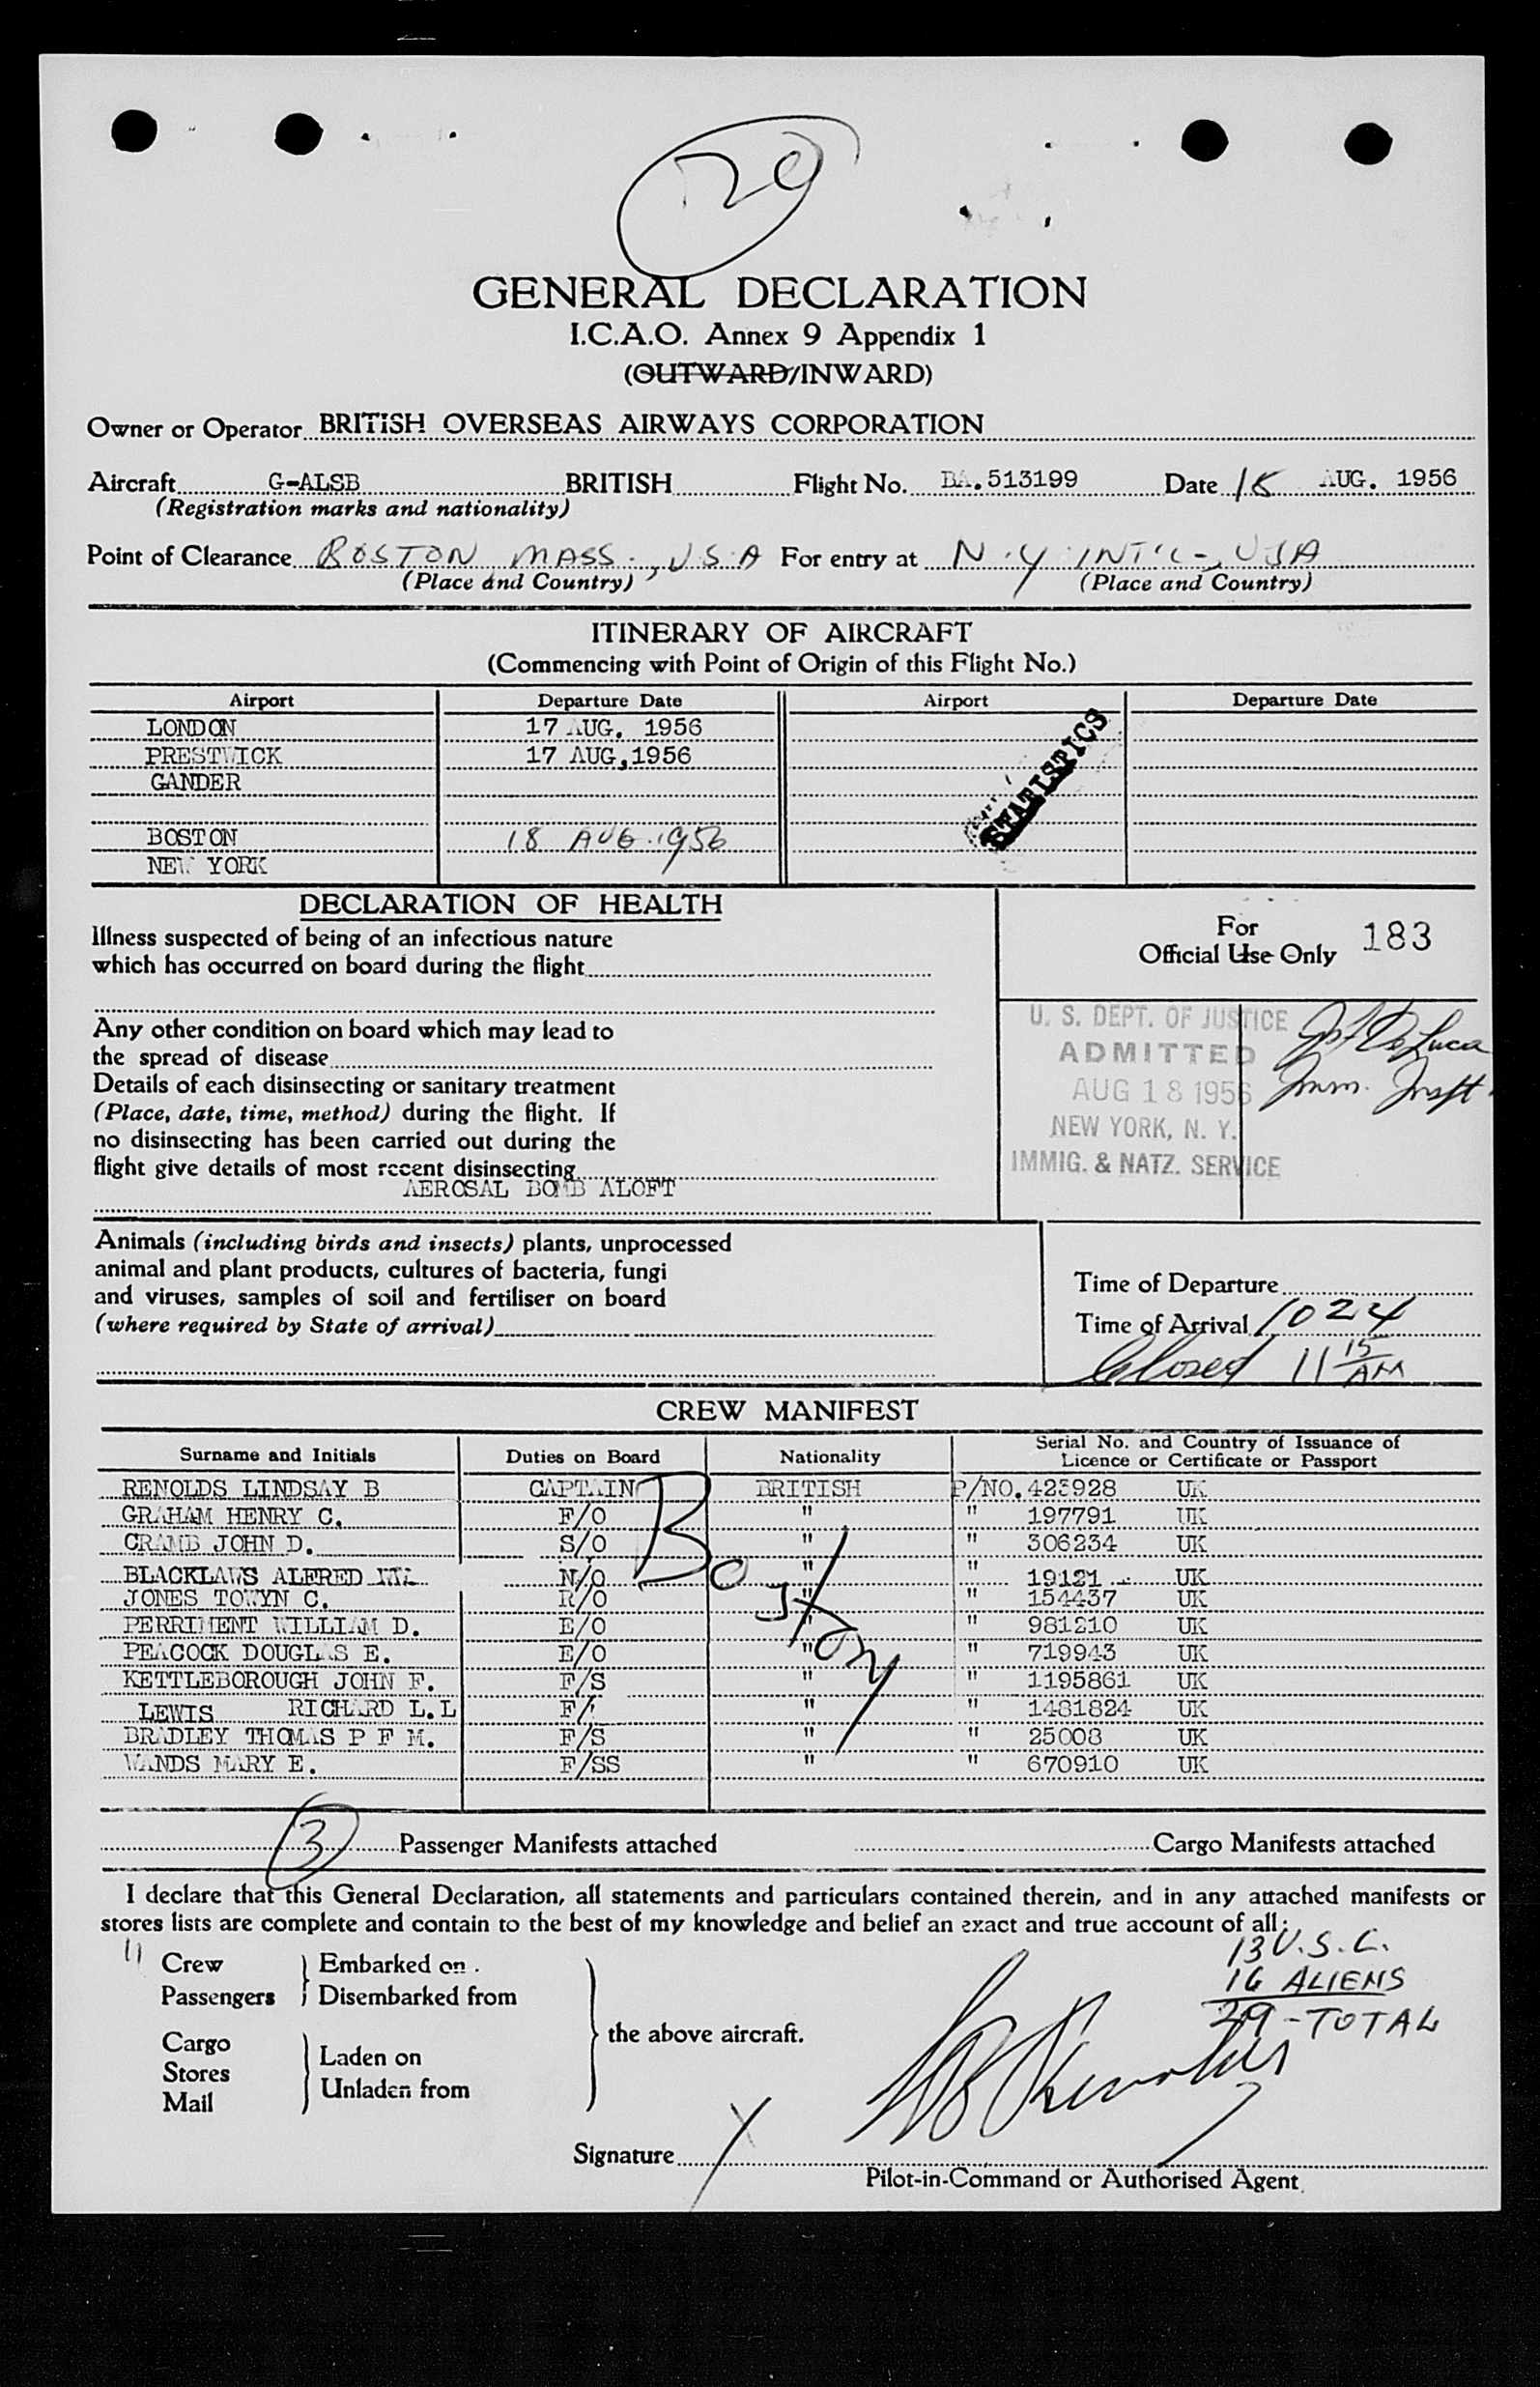 29
GENERAL DECLARATION
I.C.A.O. Annex 9 Appendix 1
(OUTWARD/INWARD)
Owner or Operator BRITISH OVERSEAS AIRWAYS CORPORATION
Aircraft G-ALSB BRITISH Flight No. BA.513199 Date 18 AUG. 1956
(Registration marks and nationality)
Point of Clearance BOSTON MASS., U.S.A For entry at N.Y INT'L-, USA
(Place and Country) (Place and Country)
ITINERARY OF AIRCRAFT
(Commencing with Point of Origin of this Flight No.)
Airport Departure Date Airport Departure Date
LONDON 17 AUG. 1956
PRESTWICK 17 AUG, 1956
GANDER
STATISTICS
BOSTON 18 AUG. 1956
NEW YORK
DECLARATION OF HEALTH
Illness suspected of being of an infectious nature
which has occurred on board during the flight
Any other condition on board which may lead to
the spread of disease
Details of each disinsecting or sanitary treatment
(Place, date, time, method) during the flight. If
no disinsecting has been carried out during the
flight give details of most recent disinsecting
AEROSAL BOMB ALOFT
For
Official Use Only 183
U. S. DEPT. OF JUSTICE
ADMITTED
AUG 18 1956
NEW YORK, N. Y.
IMMIG. & NATZ. SERVICE
De Luca
Imm. Inspt.
Animals (including birds and insects) plants, unprocessed
animal and plant products, cultures of bacteria, fungi
and viruses, samples of soil and fertiliser on board
(where required by State of arrival)
Time of Departure
Time of Arrival 1024
Closed 11 15 AM
CREW MANIFEST
Surname and Initials Duties on Board Nationality Serial No. and Country of Issuance of
Licence or Certificate or Passport
RENOLDS LINDSAY B CAPTAIN BRITISH P/NO. 423928 UK
GRAHAM HENRY C. F/O " " 197791 UK
CRAMB JOHN D. S/O " " 306234 UK
BLACKLAWS ALFRED N/O " " 19121 UK
JONES TOWYN C. R/O " " 154437 UK
PERRIMENT WILLIAM D. E/O " " 981210 UK
PEACOCK DOUGLAS E. E/O " " 719943 UK
KETTLEBOROUGH JOHN F. F/S " " 1195861 UK
LEWIS RICHARD L.L F/ " " 1481824 UK
BRADLEY THOMAS P F M. F/S " " 25008 UK
WANDS MARY E. F/SS " " 670910 UK
Boston
3 Passenger Manifests attached Cargo Manifests attached
I declare that this General Declaration, all statements and particulars contained therein, and in any attached manifests or
stores lists are complete and contain to the best of my knowledge and belief an exact and true account of all:
11 Crew
Passengers
Embarked on
Disembarked from
Cargo
Stores
Mail
Laden on
Unladen from
the above aircraft.
13 U.S.C.
16 ALIENS
29-TOTAL
Signature X
Pilot-in-Command or Authorised Agent